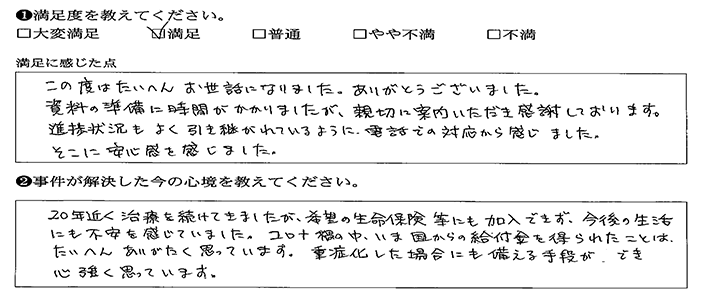 ❶満足度を教えてください。
□大変満足 ☑満足 □普通 □やや不満 □不満
満足に感じた点
この度はたいへんお世話になりました。ありがとうございました。
資料の準備に時間がかかりましたが、親切に案内いただき感謝しております。
進捗状況もよく引き継がれているように、電話での対応から感じました。
そこに安心感を感じました。
❷事件が解決した今の心境を教えてください。
20年近く治療を続けてきましたが、希望の生命保険等にも加入できず、今後の生活
にも不安を感じていました。コロナ禍の中、いま国からの給付金を得られたことは、
たいへんありがたく思っています。重症化した場合にも備える手段が、でき
心強く思っています。